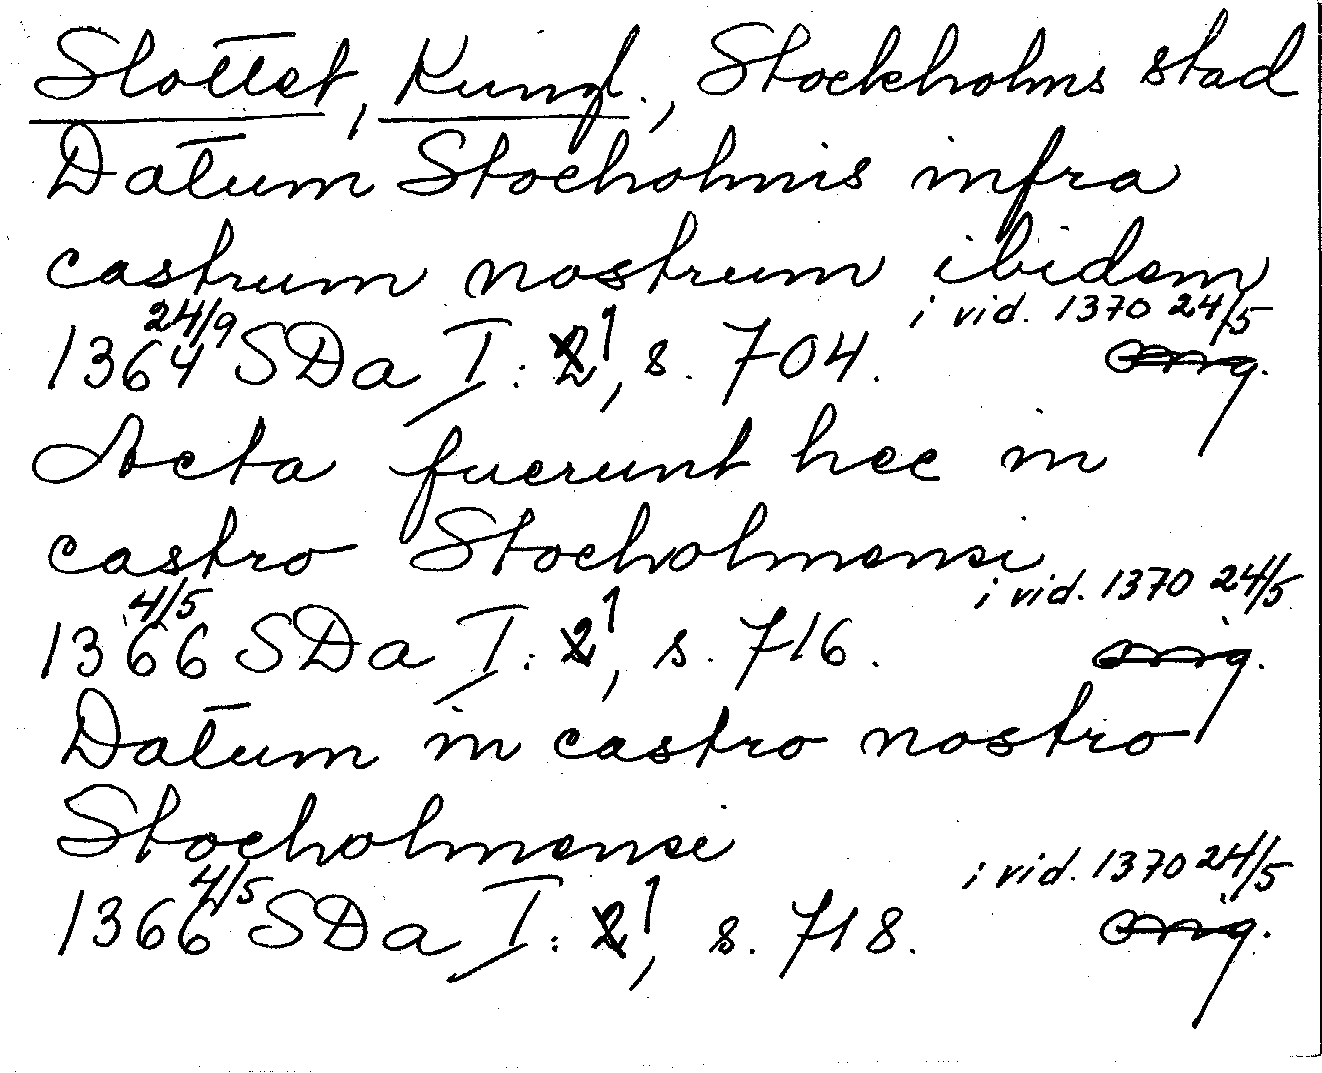 Slottet, Kungl., Stockholms stad
Datum Stocholmis infra
castrum nostrum ibidem
i vid. 1370 24/5
1364 24/9 SDa I: 2 1, s. 704. orig.
Acta fuerunt hec in
castro Stocholmensi
i vid. 1370 24/5
1366 4/5 SDa I: 2 1, s. 716. orig.
Datum in castro nostro
Stocholmensi
i vid. 1370 24/5
1366 4/5 SDa I: 2 1, s. 718. orig.